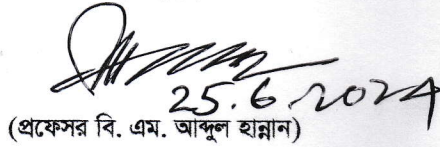 25.6.2024
(প্রফেসর বি. এম. আব্দুল হান্নান)